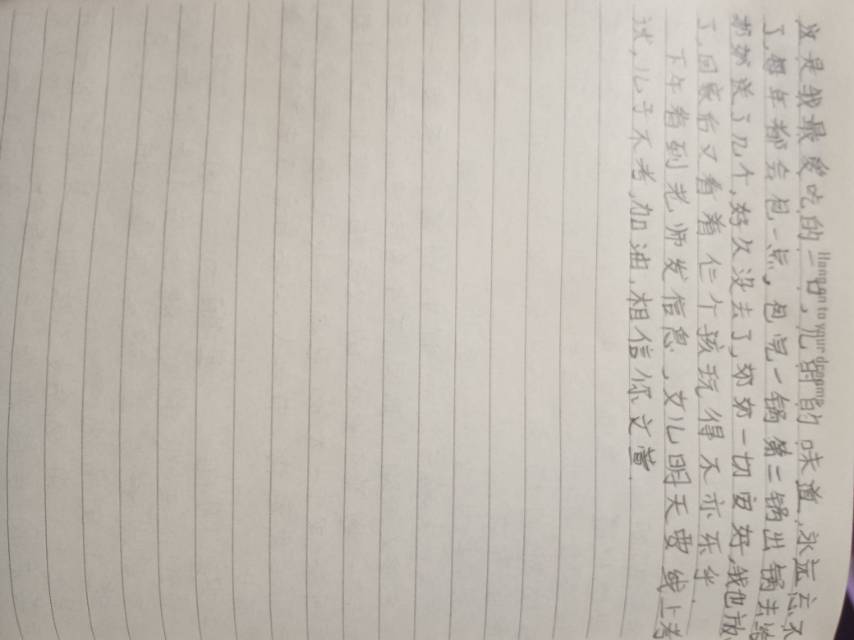 Hang on to your dreams
这是我最爱吃的一口,儿时的味道,永远忘不
了,每年都会包一点,包完一锅第二锅出锅去给
奶奶送了几个,好久没去了,奶奶一切安好,我也放
了,回家后又看着仨个孩玩得不亦乐乎
下午看到老师发信息,女儿明天要线上考
试,儿子不考,加油,相信你文萱